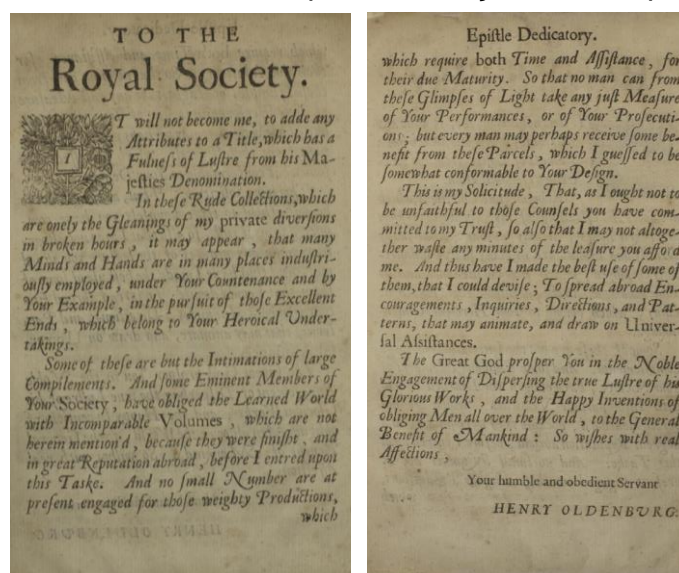 TO THE
Royal Society.
IT will not become me, to adde any
Attributes to a Title, which has a
Fulneſs of Luſtre from his Ma-
jeſties Denomination.
In theſe Rude Collections, which
are onely the Gleanings of my private diverſions
in broken hours, it may appear, that many
Minds and Hands are in many places induſtri-
ouſly employed, under Your Countenance and by
Your Example, in the purſuit of thoſe Excellent
Ends, which belong to Your Heroical Under-
takings.
Some of theſe are but the Intimations of large
Compilements. And ſome Eminent Members of
Your Society, have obliged the Learned World
with Incomparable Volumes, which are not
herein mention'd, becauſe they were finiſht, and
in great Reputation abroad, before I entred upon
this Taske. And no ſmall Number are at
preſent engaged for thoſe weighty Productions,
which
Epiſtle Dedicatory.
which require both Time and Aſſiſtance, for
their due Maturity. So that no man can from
theſe Glimpſes of Light take any juſt Meaſure
of Your Performances, or of Your Proſecuti-
ons; but every man may perhaps receive ſome be-
nefit from theſe Parcels, which I gueſſed to be
ſomewhat conformable to Your Deſign.
This is my Solicitude, That, as I ought not to
be unfaithful to thoſe Counſels you have com-
mitted to my Truſt, ſo alſo that I may not altoge-
ther waſte any minutes of the leaſure you afford
me. And thus have I made the beſt uſe of ſome of
them, that I could deviſe; To ſpread abroad En-
couragements, Inquiries, Directions, and Pat-
terns, that may animate, and draw on Univer-
ſal Aſsiſtances.
The Great God proſper You in the Noble
Engagement of Diſperſing the true Luſtre of his
Glorious Works, and the Happy Inventions of
obliging Men all over the World, to the General
Benefit of Mankind: So wiſhes with real
Affections,
Your humble and obedient Servant
HENRY OLDENBURG.